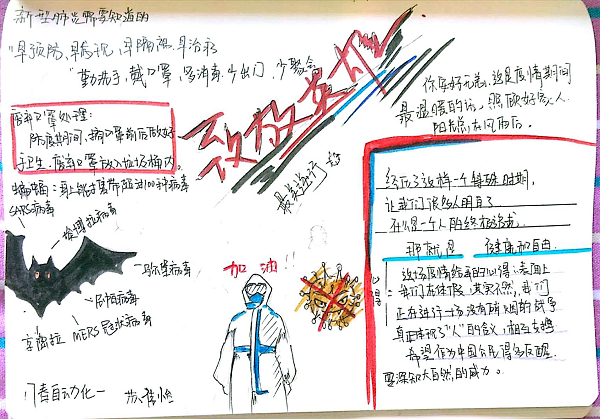 新型肺炎所需要知道的
"早预防、早发现、早隔离、早治疗
"勤洗手,戴口罩,多消毒,少出门,少聚会
致敬英雄
最美逆行者
你安好无恙,这是疫情期间
最温暖的话,照顾好家人
阳光总在风雨后。
废弃口罩处理:
防疫期间,摘口罩前后做好
手卫生,废弃口罩放入垃圾桶内。
蝙蝠:身上能携带超过100种病毒
SARS病毒
埃博拉病毒
马尔堡病毒
尼帕病毒
MERS冠状病毒
亨德拉
加油!!
经历了这样一个特殊时期,
让我们很多人明白了
什么是一个人的终极追求。
那就是 健康和自由
这场疫情给我的心得:表面上
我们在休假,其实不然,我们
正在进行一场没有硝烟的战争
真正体现了"人"的含义,相互支撑
希望作为中国公民得多反醒,
要深知大自然的威力。